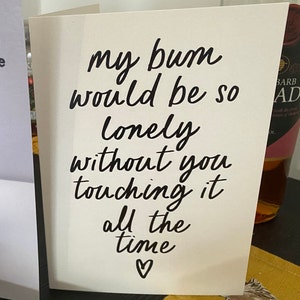 my bum
would be so
lonely
without you
touching it
all the
time
♡